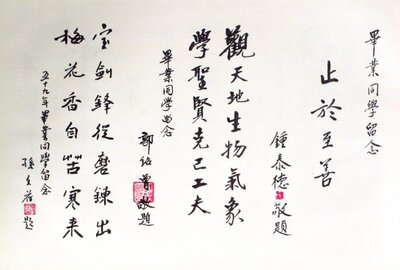 畢業同學留念
止於至善
鍾泰德敬題
觀天地生物氣象
學聖賢克己工夫
畢業同學留念
郭紹曾敬題
宝劍鋒從磨鍊出
梅花香自苦寒来
五十九年畢業同學留念
孫
題